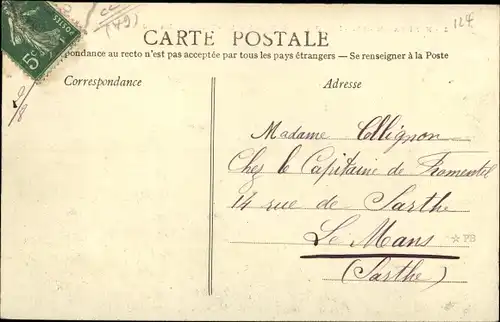 (49)
124
POSTES
5c
CARTE POSTALE
pondance au recto n'est pas acceptée par tous les pays étrangers — Se renseigner à la Poste
Correspondance
Adresse
Madame Collignon
Chez le Capitaine de Fromentel
14 rue de Sarthe
Le Mans
FB
(Sarthe)